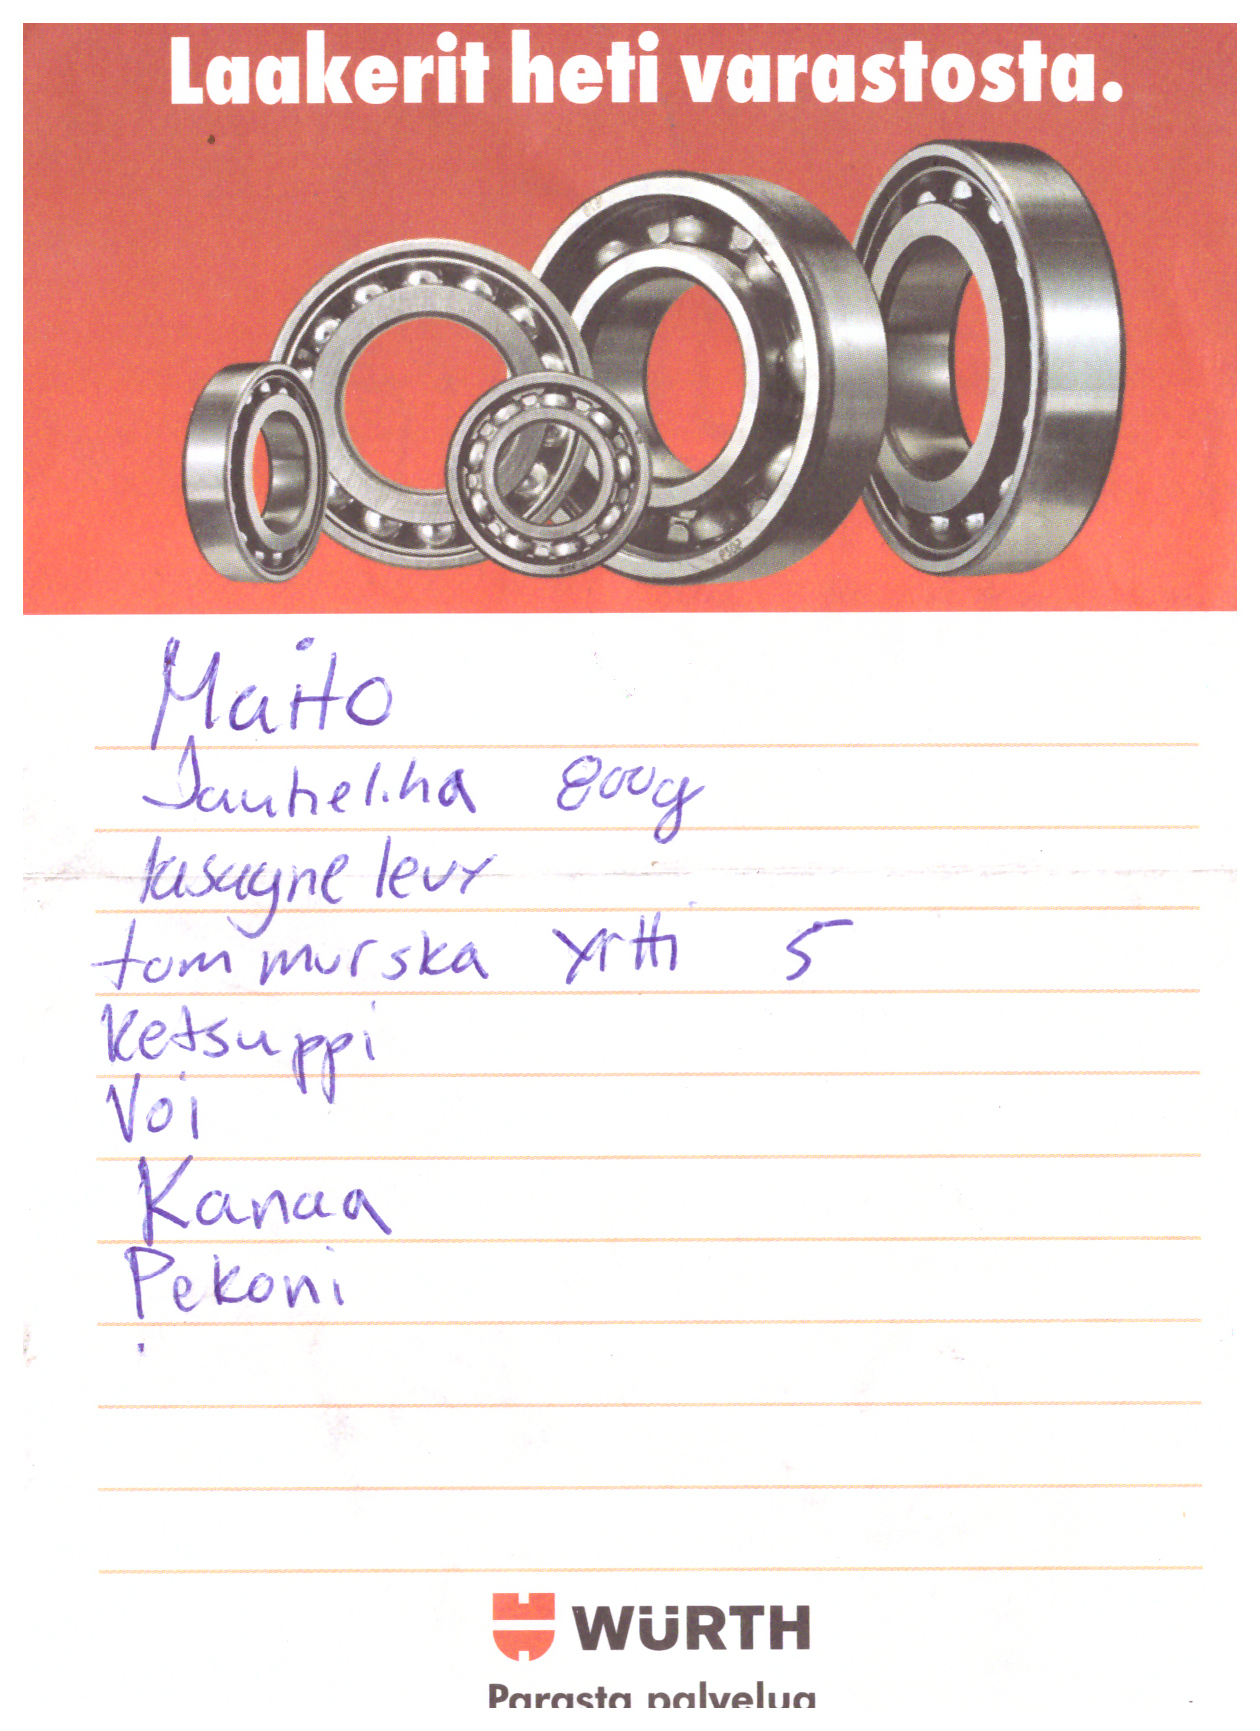 Laakerit heti varastosta.
Maito
Jauheliha 800g
lasagne levy
tom murska yrtti 5
Ketsuppi
Voi
Kanaa
Pekoni
WÜRTH
Parasta palvelua